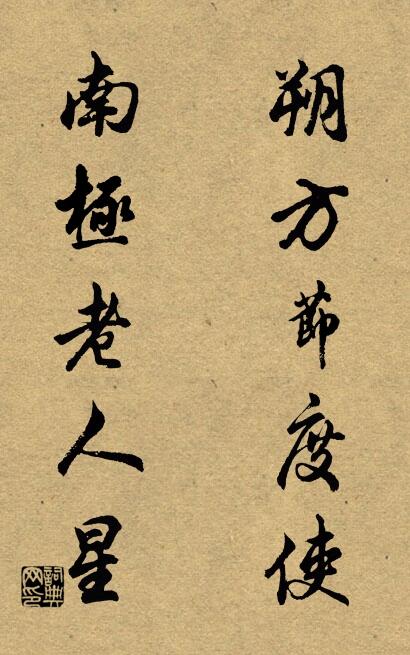 朔方節度使
南極老人星
詞典網印